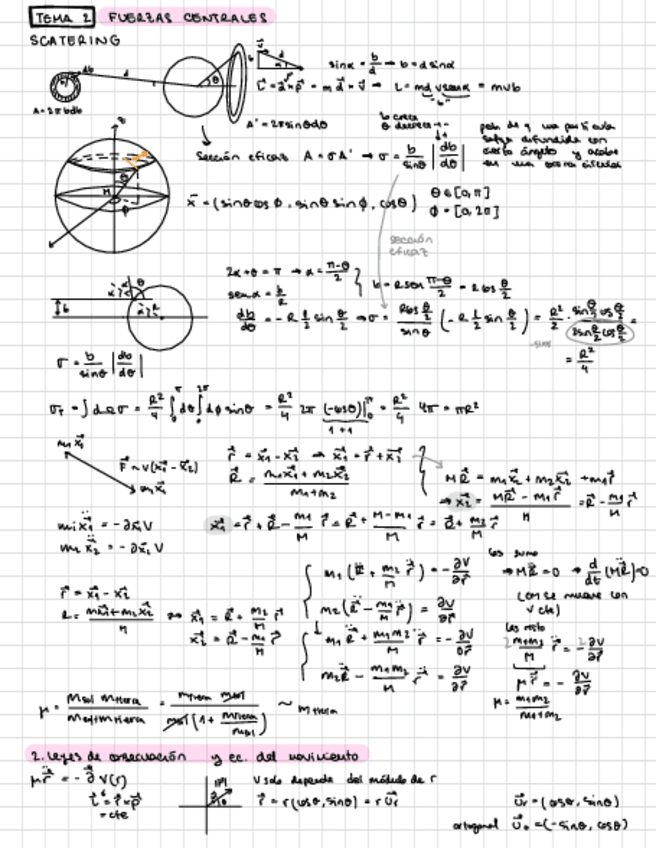 TEMA 2 FUERZAS CENTRALES
SCATERING
db d θ
sinα = b/d → b = d sinα
A = 2πbdb
L⃗ = d⃗ × p⃗ = m d⃗ × v⃗ → L = md v sinα = mvb
"b"
A' = 2π sinθdθ
b crece
θ decrece → -
Sección eficaz A = σA' → σ = b/sinθ |db/dθ|
x⃗ = (sinθcosϕ, sinθsinϕ, cosθ)
θ ∈ [0,π]
ϕ = [0,2π]
sección
eficaz
2α+θ = π → α = (π-θ)/2
senα = b/R
b = R sen (π-θ)/2 = R cos θ/2
db/dθ = -R 1/2 sin θ/2 ⇒ σ = (R cos θ/2)/sinθ (-R 1/2 sin θ/2) = R²/2 · (sin θ/2 cos θ/2)/(2sin θ/2 cos θ/2) =
= R²/4
σ = b/sinθ |db/dθ|
σ_T = ∫ dΩ σ = R²/4 ∫₀^π dθ ∫₀^2π dϕ sinθ = R²/4 2π (-cosθ)|₀^π = R²/4 4π = πR²
1+1
m₁ x⃗₁
F⃗ ~ V(x⃗₁ - x⃗₂)
m₂x⃗₂
r⃗ = x⃗₁ - x⃗₂ ⇒ x⃗₁ = r⃗ + x⃗₂
R⃗ = (m₁x⃗₁ + m₂x⃗₂)/(m₁+m₂)
MR⃗ = m₁x⃗₂ + m₂x⃗₂ + m₁r⃗
⇒ x⃗₂ = (MR⃗ - m₁r⃗)/M = R⃗ - m₁/M r⃗
x⃗₁ = r⃗ + R⃗ - m₁/M r⃗ = R⃗ + (M-m₁)/M r⃗ = R⃗ + m₂/M r⃗
m₁ẍ₁ = -∂x⃗₁V
m₂ẍ₂ = -∂x⃗₂V
r⃗ = x⃗₁ - x⃗₂
R = (m₁x⃗₁+m₂x⃗₂)/M ⇒ x⃗₁ = R⃗ + m₂/M r⃗
x⃗₂ = R⃗ - m₁/M r⃗
m₁(R̈ + m₂/M r̈) = -∂V/∂r⃗
m₂(R̈ - m₁/M r̈) = ∂V/∂r⃗
m₁R̈ + m₁m₂/M r̈ = -∂V/∂r⃗
m₂R̈ - m₁m₂/M r̈ = ∂V/∂r⃗
los sumo
⇒ MR̈ = 0 → d/dt (MṘ) = 0
(CM se mueve con
v cte)
los resto
2 m₁m₂/M r̈ = -2 ∂V/∂r⃗
μr̈ = -∂V/∂r⃗
μ = m₁m₂/(m₁+m₂)
μ = (Msol Mtierra)/(Msol+Mtierra) = (mtierra msol)/(msol(1 + mtierra/msol)) ~ mtierra
2. Leyes de conservación y ec. del movimiento
μr̈ = -∂⃗ V(r)
L⃗ = r⃗ × p⃗
= cte
V solo depende del módulo de r
r⃗ = r(cosθ, sinθ) = r u⃗r
u⃗r = (cosθ, sinθ)
ortogonal u⃗θ = (-sinθ, cosθ)